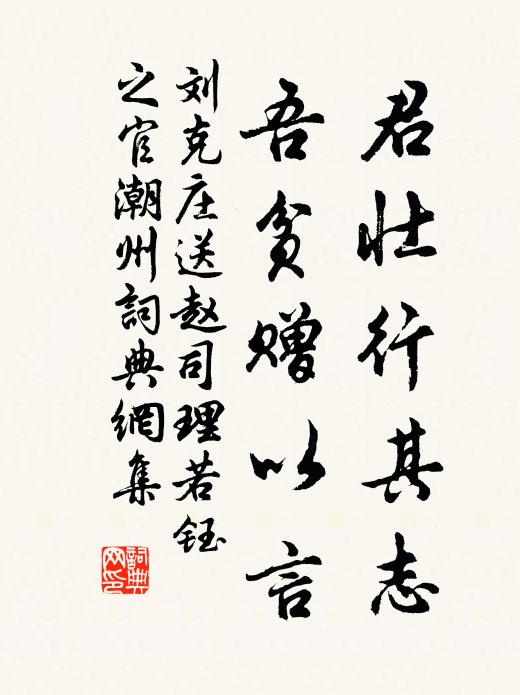 君壮行其志
吾贫赠以言
刘克庄送赵司理若鈺
之官潮州詞典網集
詞典
网印